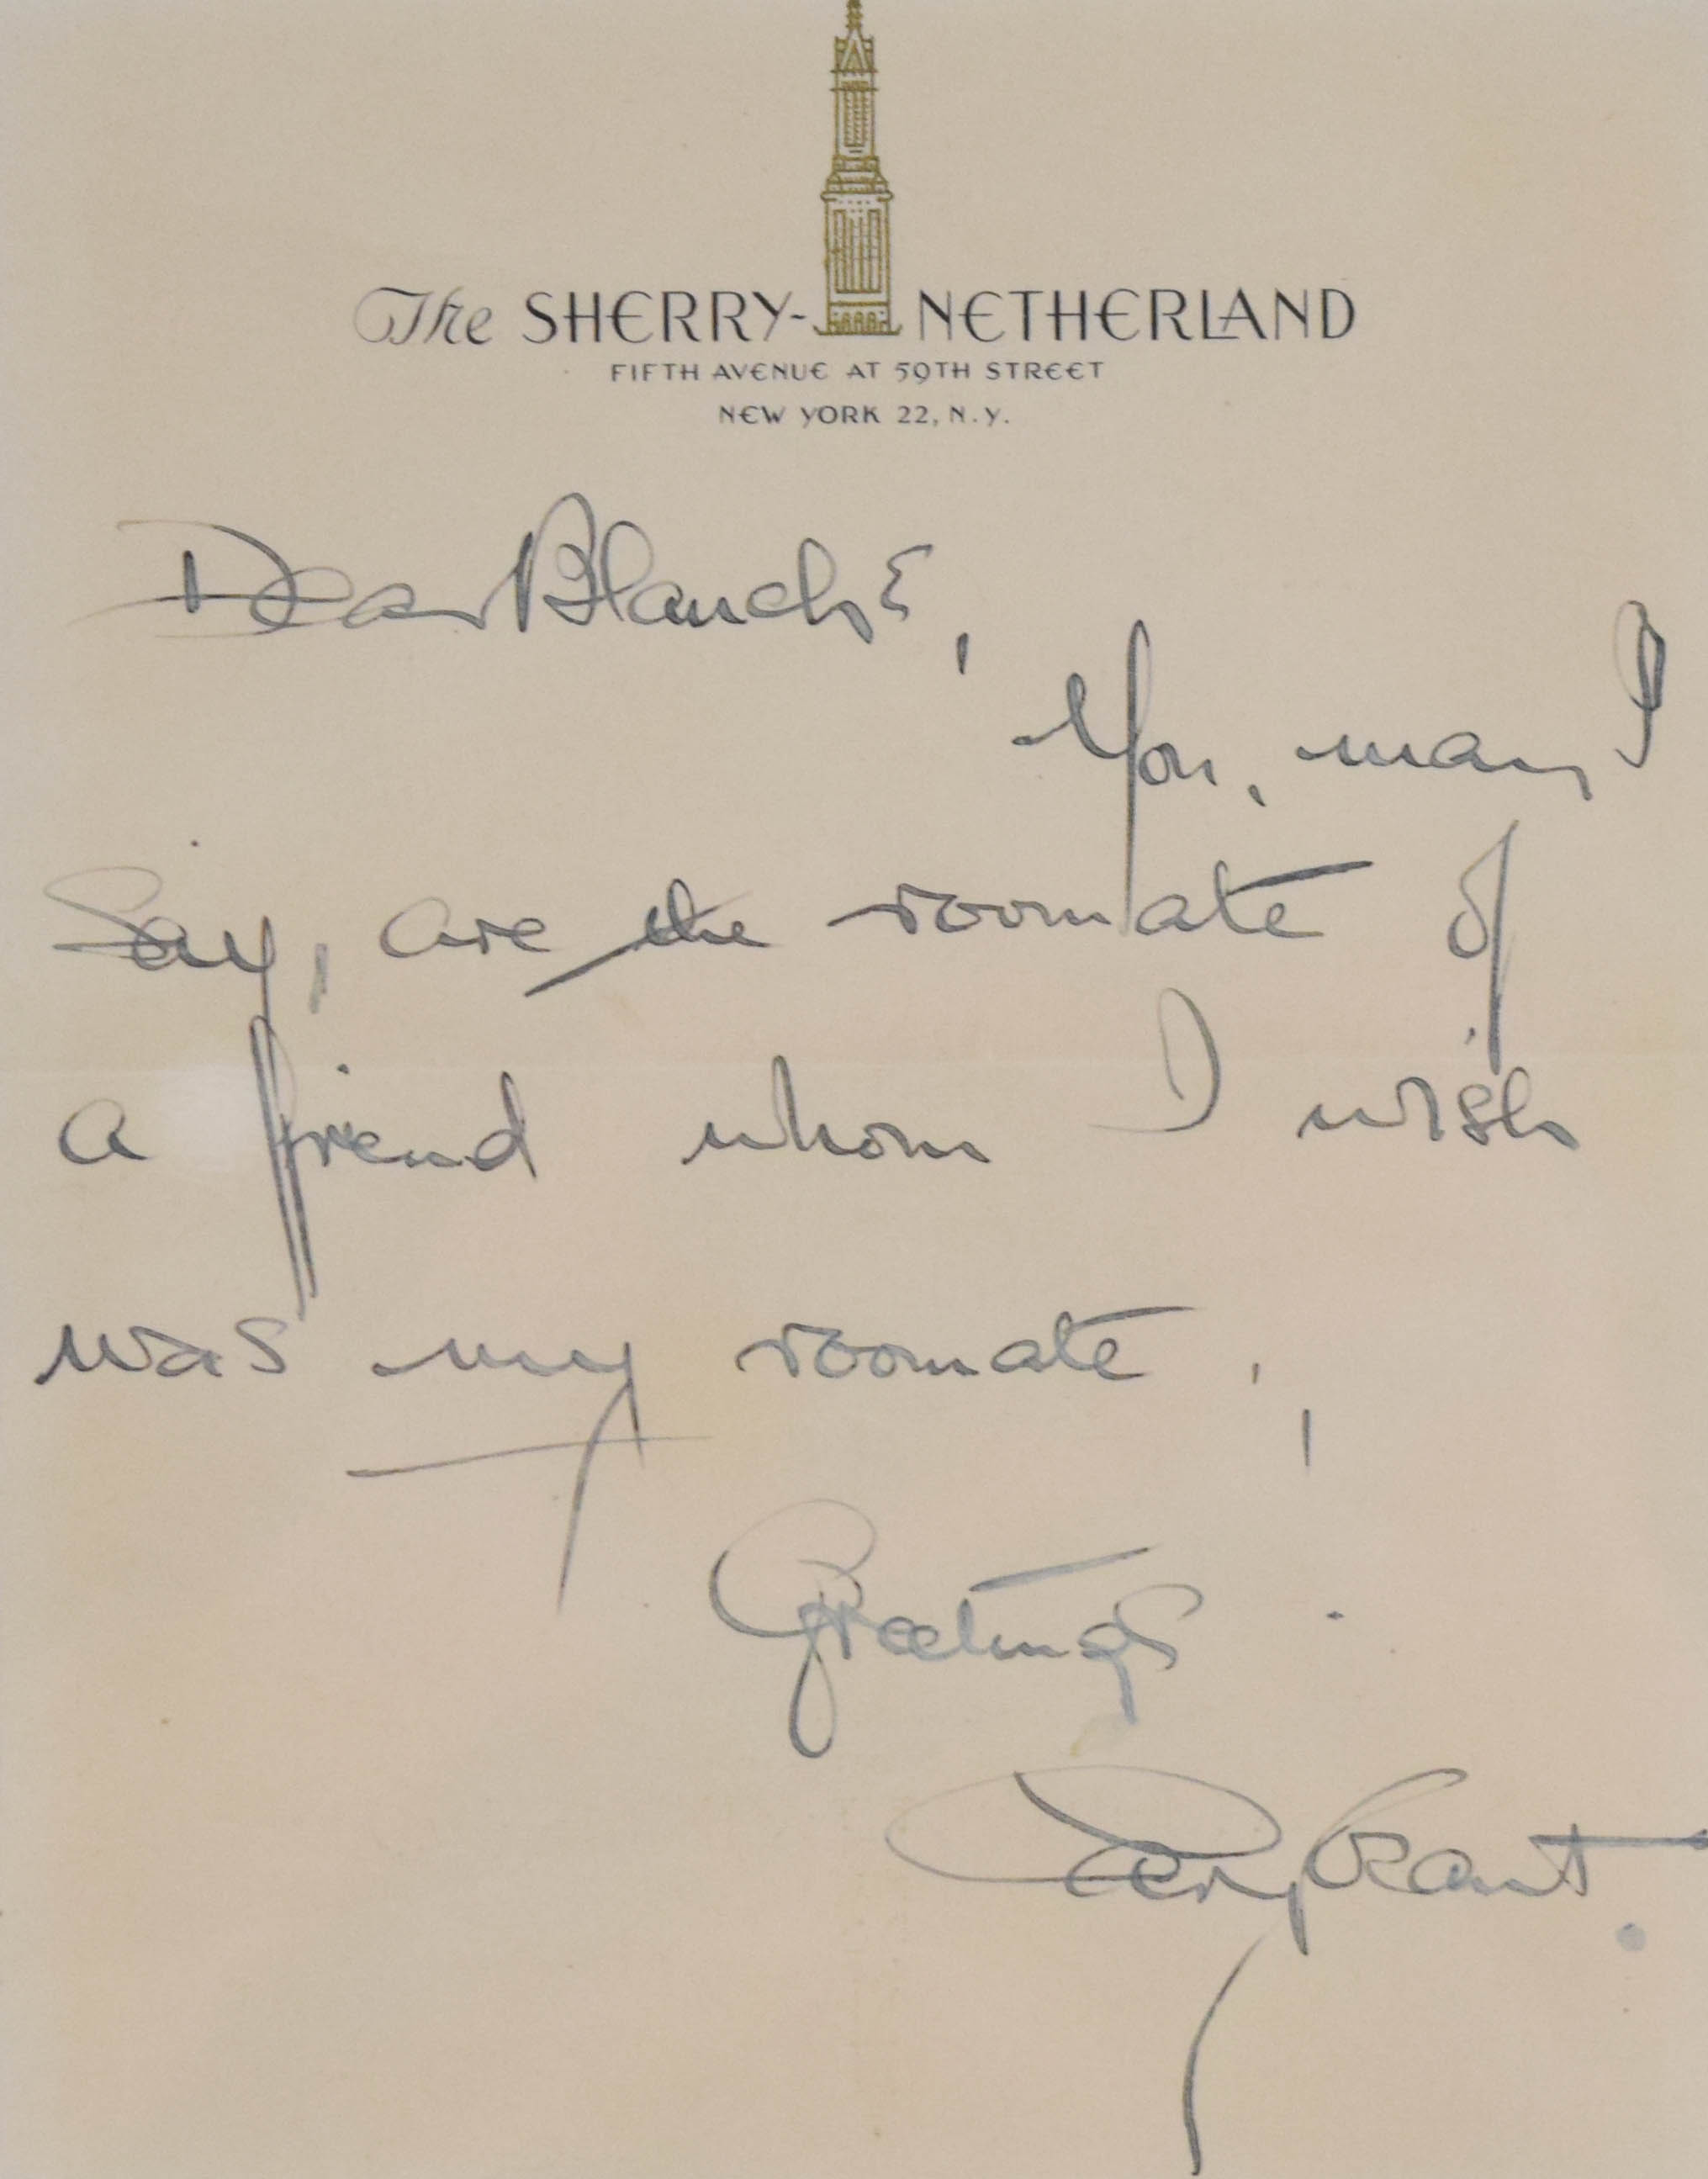 The SHERRY-NETHERLAND
FIFTH AVENUE AT 59TH STREET
NEW YORK 22, N.Y.
Dear Blanche,
You, may I
Say, are the roomate of
a friend whom I wish
was my roomate,
Greetings.
Cary Grant.